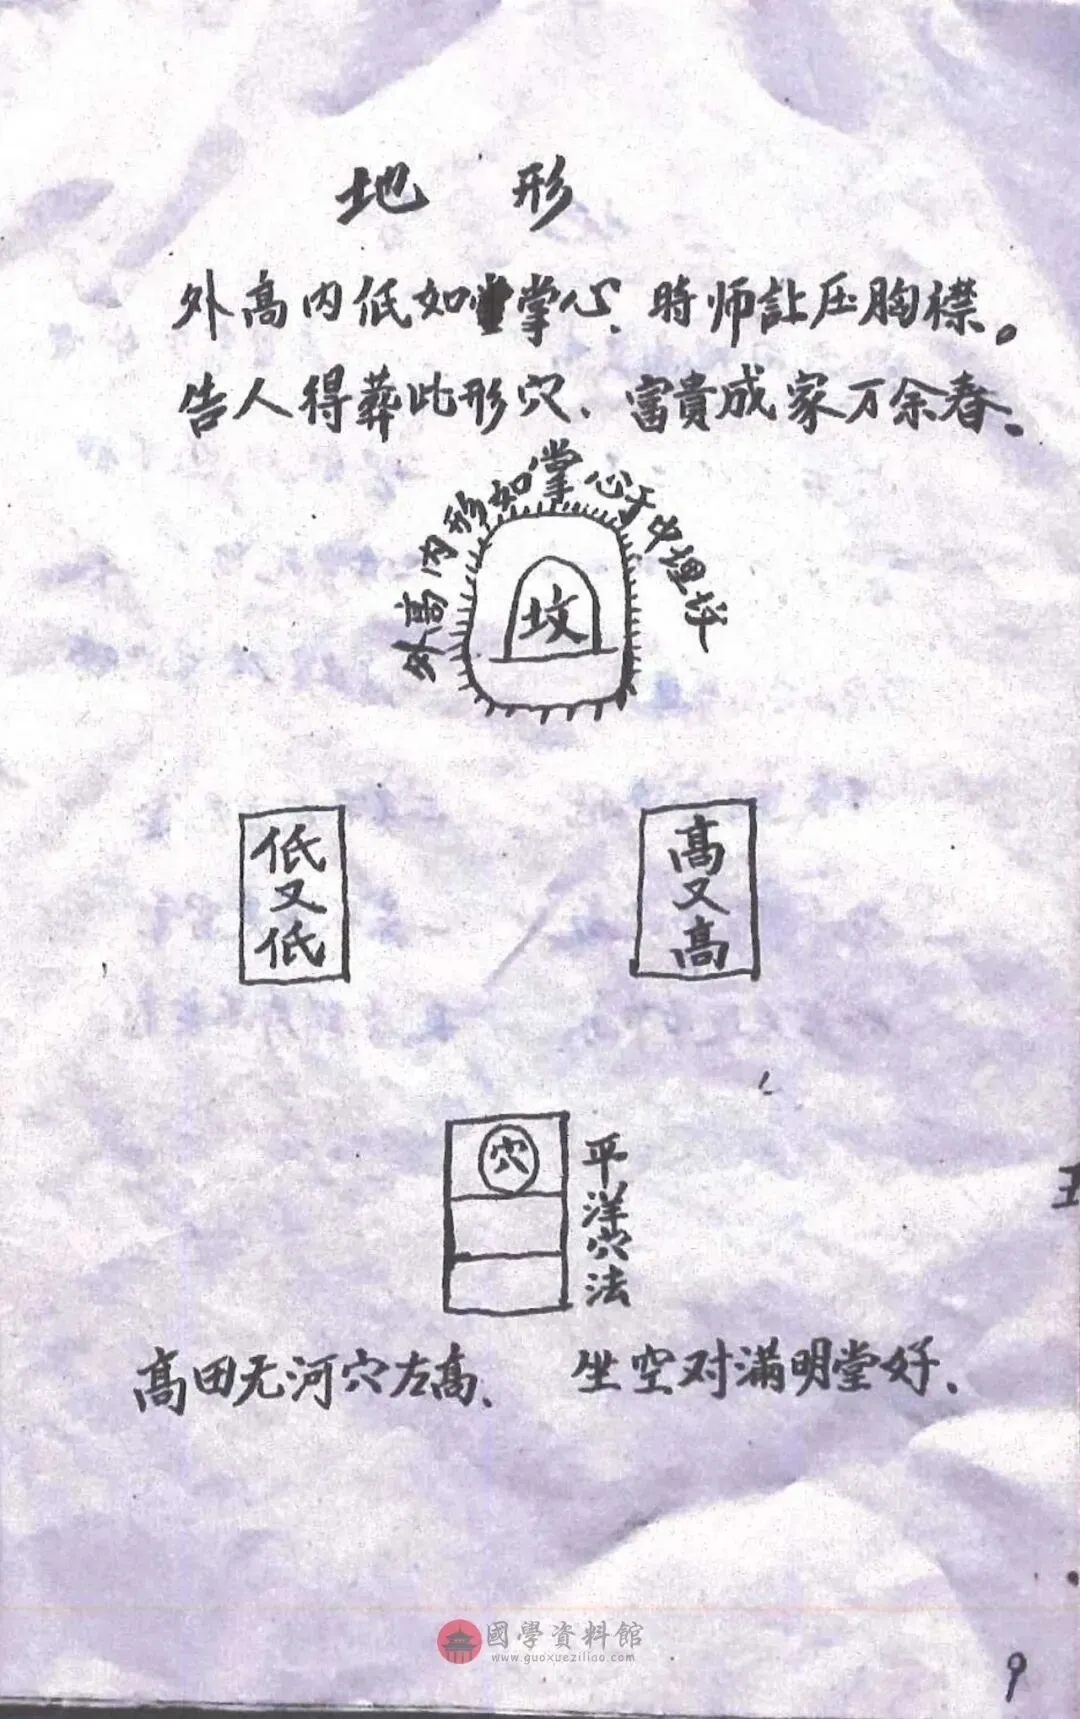 地 形
外高内低如掌心、時师訨压胸襟。
告人得葬此形穴、富貴成家万余春。
外高内形如掌心于中埋坟
坟
低又低
高又高
穴
平洋穴法
高田无河穴左高、 坐空对满明堂好、
國學資料館
www.guoxueziliao.com
9